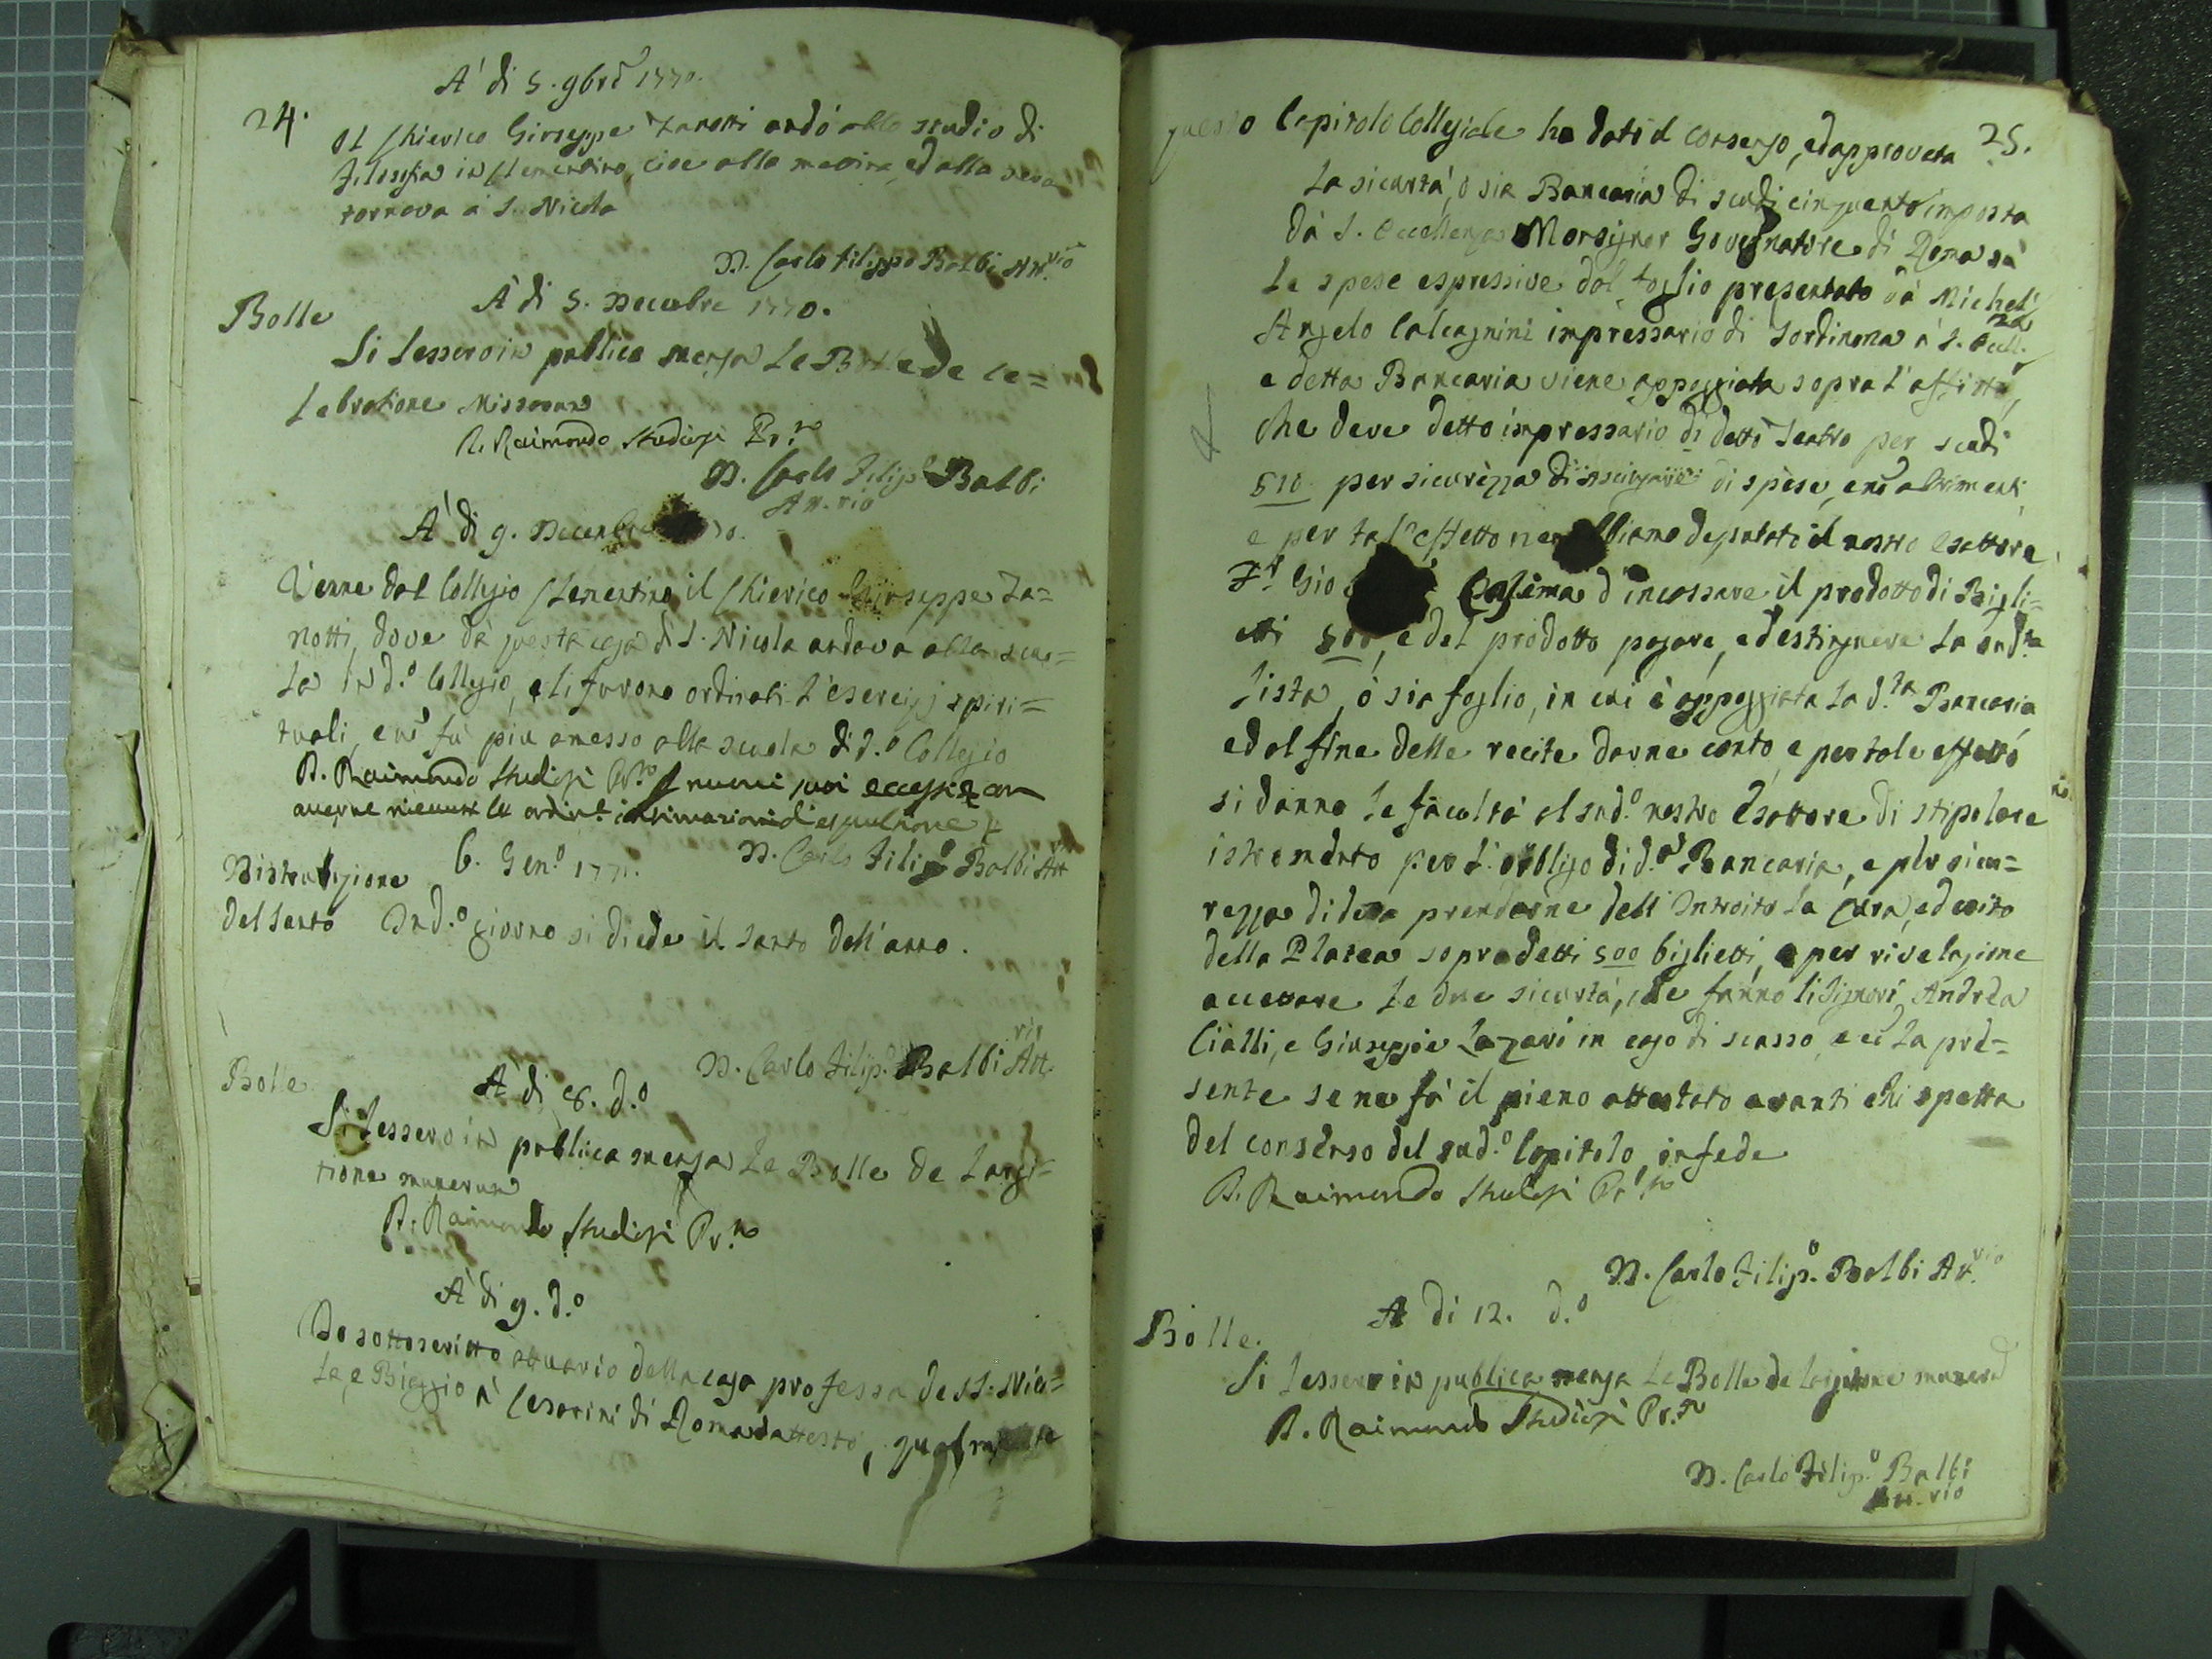 24.
A' di 5. 9bre 1770.
Il Chierico Giuseppe Zanotti andò allo studio di
Filosofia in Clementino, cioe alla matina, ed alla sera
tornava à S. Nicola
D. Carlo Filippo Balbi Att.rio
Bolle
A' di 5. Decembre 1770.
Si lessero in publica mensa Le Bolle de ce=
Lebratione Missarum
D. Raimondo Studiosi Pr.to
D. Carlo Filip.o Balbi
Att.rio
A' di 9. Decembre 70.
Venne dal Collegio Clementino il Chierico Giuseppe Za=
notti, dove da questa casa di S. Nicola andava alla scuo=
La in d.o Collegio, e li furono ordinati L'esercizj spiri=
tuali, e nō fù piu amesso alla scuola di d.o Collegio
D. Raimondo Studiosi Pr.to
D. Carlo Filip.o Balbi Att
Distribuzione
del Santo
6. Gen.o 1771.
In d.o giorno si diede il Santo dell'anno.
D. Carlo Filip.o Balbi Att.rio
Bolle
A' di 8. d.o
Si Lessero in publica mensa Le Bolle de Largi=
tione munerum
D. Raimondo Studiosi Pr.to
A' di 9. d.o
Io sottoscritto attuario della casa professa de SS. Nico=
La, e Biaggio à Cesarini di Roma attesto, qualmente
25.
questo Capitolo Collegiale ha dato il consenso, ed approvata
La sicurtà, o sia Bancaria di scudi cinquento imposta
da S. Eccellenza Monsignor Governatore di Roma sà
Le spese espressive dal foglio presentato da Michel'
Angelo Calcagnini impressario di Tordinona à S. Ecc.za
e detta Bancaria viene appoggiata sopra l'affitto,
che deve detto impressario di detto Teatro per scudi
510 per sicurezza di di spese, e nō altrimenti
e per tal'effetto ne abbiamo deputato il nostro esattore
Gio d'incassare il prodotto di Bigli=
etti 500, e del prodotto pagare, ed estinguere La sud.ta
Lista, ò sia foglio, in cui è appoggiata La d.ta Bancaria
ed al fine delle recite darne conto, e per tale effetto
si danno Le facoltà al sud.o nostro Esattore di stipolare
istromento per L'obbligo di d.a Bancaria, e per sicu=
rezza di detta prenderne dell'Introito La cura, ed esito
della Platea sopradetti 500 biglietti, e per rivelazione
accettare Le due sicurtà, che fanno li Signori Andrea
Cialli, e Giuseppe Lazari in caso di scasso, e cō La pre=
sente se ne fà il pieno attestato avanti chi spetta
del consenso del sud.o Capitolo, in fede
D. Raimondo Studiosi Pr.to
D. Carlo Filip.o Balbi Att.rio
Bolle.
A di 12. d.o
Si Lessero in publica mensa Le Bolle de largitione munerū
D. Raimondo Studiosi Pr.to
D. Carlo Filip.o Balbi
Att.rio